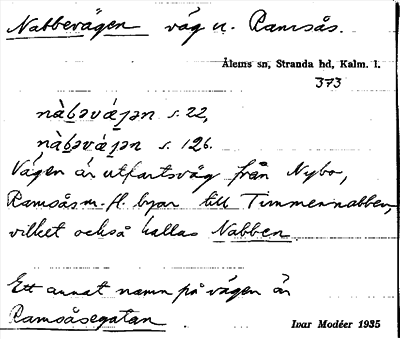 Nabbevägen väg u. Ramsås.
Ålems sn, Stranda hd, Kalm. l.
373
nàbəvá̱jən s. 22,
nàbəvá̱jən s. 126.
Vägen är utfartsväg från Nybo,
Ramsås m. fl byar till Timmernabben,
vilket också kallas Nabben.
Ett annat namn på vägen är
Ramsåsegatan
Ivar Modéer 1935